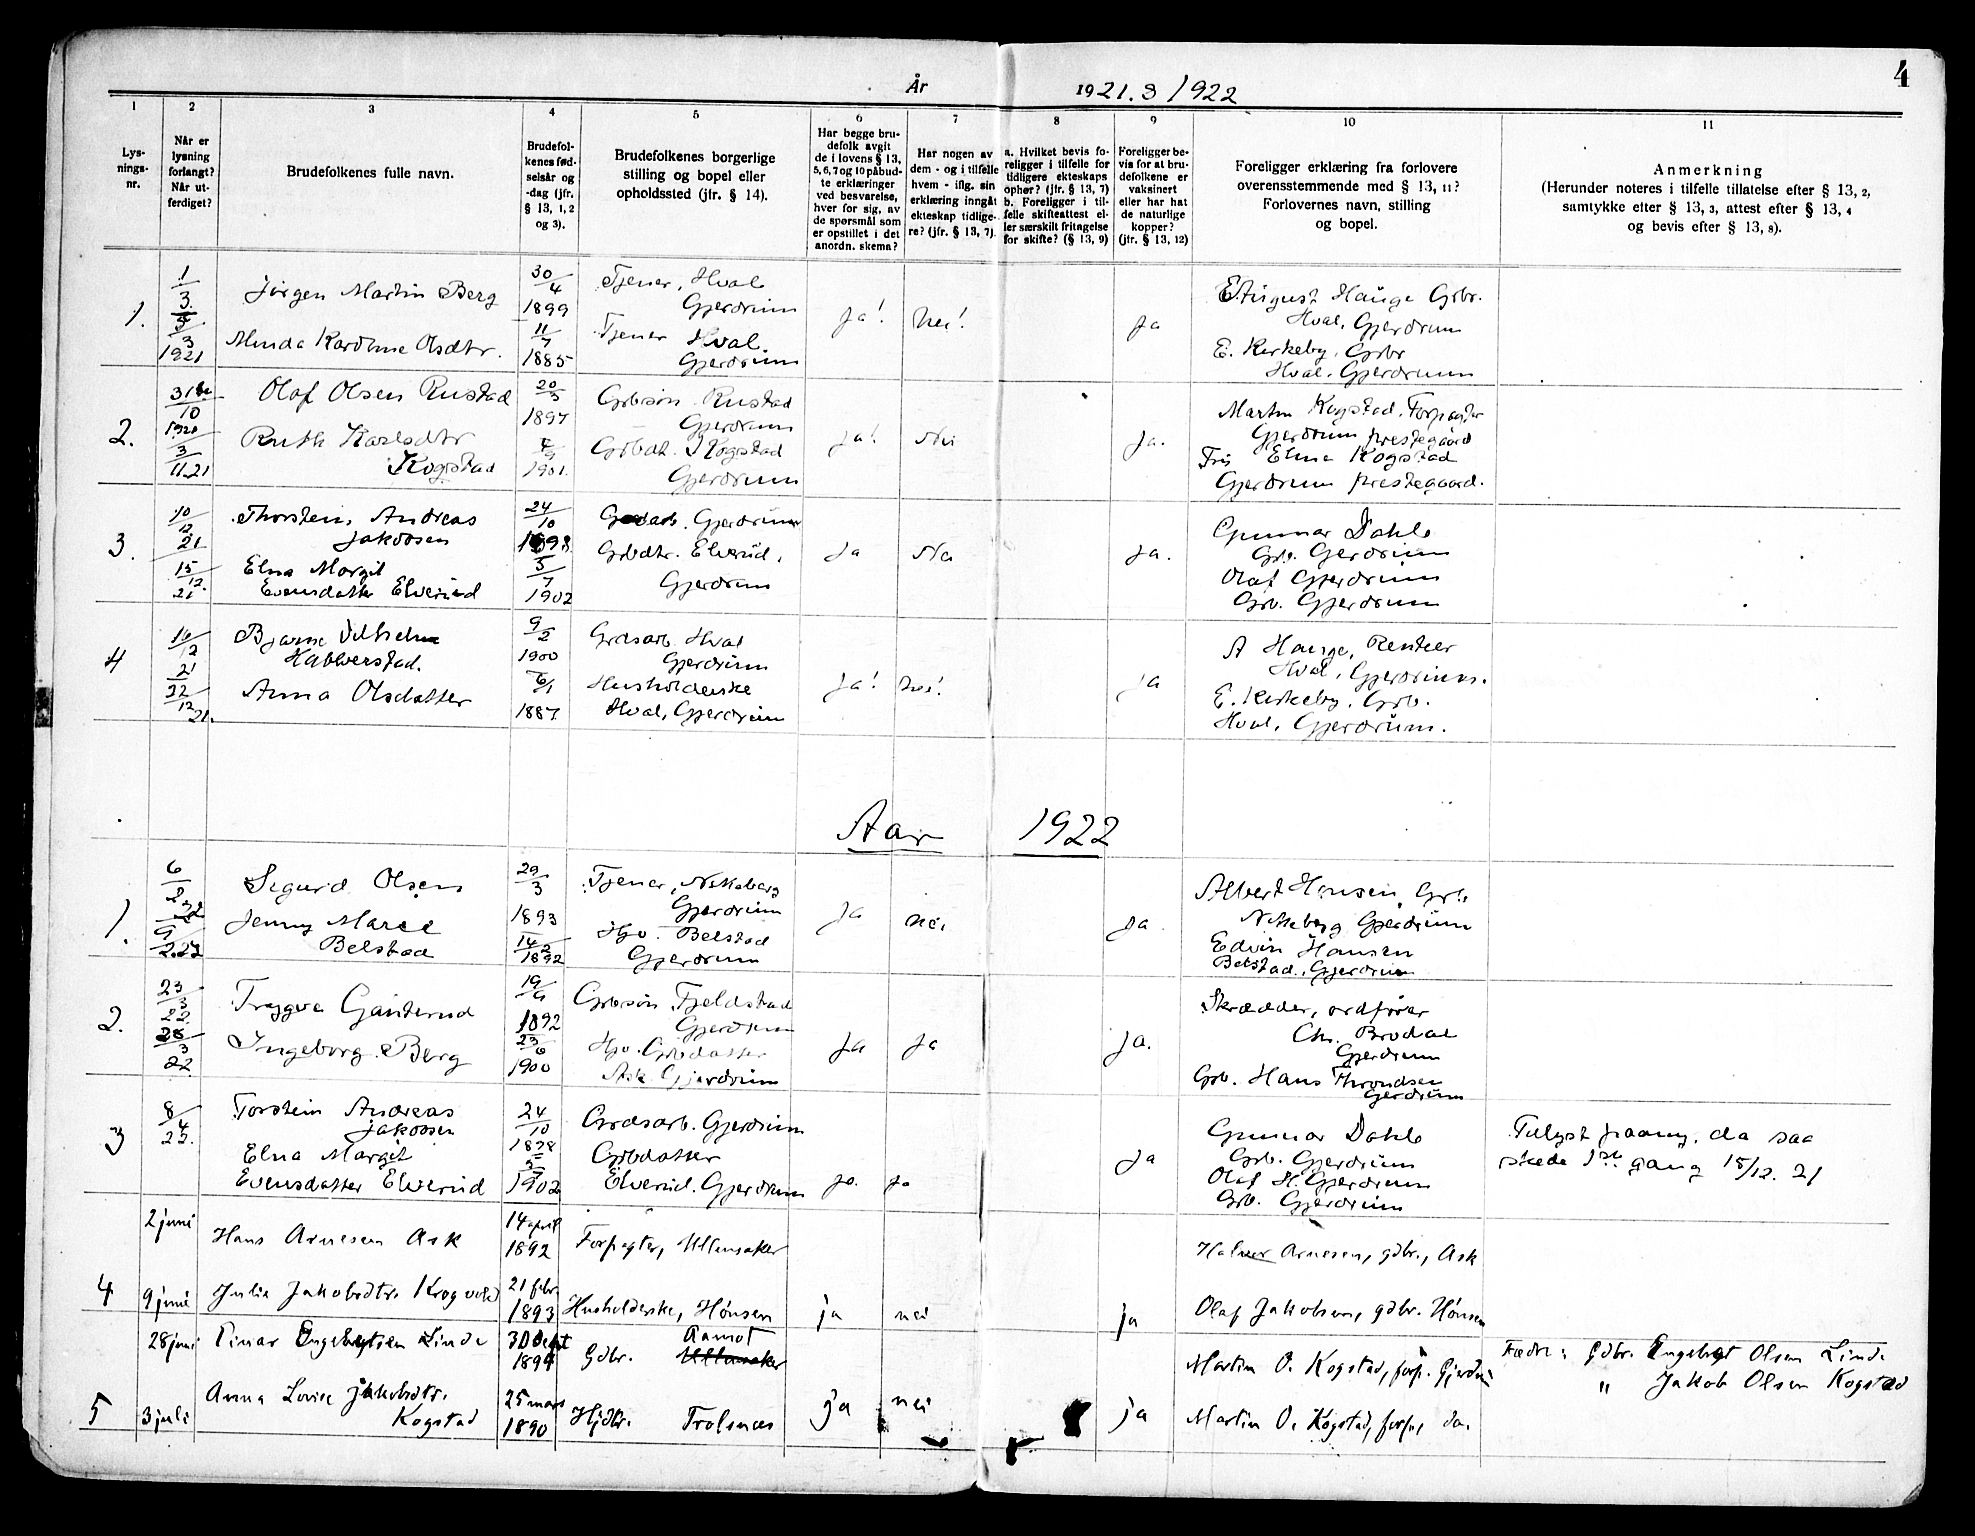 4
År 1921. & 1922
1 2 3 4 5 6 7 8 9 10 11
Lys-
nings-
nr.
Når er
lysning
forlangt?
Når ut-
ferdiget?
Brudefolkenes fulle navn.
Brudefol-
kenes fød-
selsår og
-dag (jfr.
§ 13, 1, 2
og 3).
Brudefolkenes borgerlige
stilling og bopel eller
opholdssted (jfr. § 14).
Har begge bru-
defolk avgit
de i lovens § 13,
5, 6, 7 og 10 påbud-
te erklæringer
ved besvarelse,
hver for sig, av
de spørsmål som
er opstillet i det
anordn. skema?
Har nogen av
dem - og i tilfelle
hvem - iflg. sin
erklæring inngåt
ekteskap tidlige-
re? (jfr. § 13, 7).
a. Hvilket bevis fo-
religger i tilfelle for
tidligere ekteskaps
ophør? (jfr. § 13, 7)
b. Foreligger i til-
felle skifteattest el-
ler særskilt fritagelse
for skifte? (§ 13, 9)
Foreligger be-
vis for at bru-
defolkene er
vaksinert
eller har hat
de naturlige
kopper?
(jfr. § 13, 12)
Foreligger erklæring fra forlovere
overensstemmende med § 13, 11?
Forlovernes navn, stilling
og bopel.
Anmerkning
(Herunder noteres i tilfelle tillatelse efter § 13, 2,
samtykke efter § 13, 3, attest efter § 13, 4
og bevis efter § 13, 8).
1.
1/3
3/3
1921
Jørgen Martin Berg
Minda Karoline Olsdtr.
30/4
1899
11/7
1885
Tjener, Hval
Gjerdrum
Tjener Hval
Gjerdrum
Ja! Nei! Ja
August Hauge Gbr.
Hval, Gjerdrum
E. Kirkeby, Gbr
Hval, Gjerdrum
2.
31te/10
1920
3/11.21
Olaf Olsen Rustad
Ruth Karlsdtr
Kogstad
20/5
1897
1901.
Gbrsøn Rustad
Gjerdrum
Gbdt. Kogstad
Gjerdrum
Ja! Nei Ja.
Martin Kogstad, Forpagter
Gjerdrum prestegaard
Elna Kogstad
Gjerdrum prestegaard.
3.
10/12
21
15/12
21
Thorstein Andreas
Jakobsen
Elna Margit
Evensdatter Elverud
24/10
1898
5/7
1902
Gdsarb. Gjerdrum
Grbdtr. Elverud,
Gjerdrum
Ja Nei Ja.
Gunnar Dahle
Grb. Gjerdrum
Olaf Gjerdrum
Grb. Gjerdrum
4
16/12
21
22/12
21.
Bjarne Vilhelm
Habberstad.
Anna Olsdatter
9/2
1900
6/1
1887
Grdsarb. Hval
Gjerdrum
Husholderske
Hval, Gjerdrum
Ja! Nei! Ja
A Hauge, Rentier
Hval, Gjerdrum.
E. Kirkeby, Grb.
Hval, Gjerdrum.
Aar 1922
1.
6/2 22
9/2.22
Sigurd Olsen
Jenny Marie
Belstad
29/3
1893
14/2
1892
Tjener, Nikeberg
Gjerdrum
Hjv. Belstad
Gjerdrum
Ja nei Ja.
Albert Hansen, Grb.
Nikeberg Gjerdrum
Edvin Hansen
Belstad, Gjerdrum
2.
23/3
22.
28/3
22
Trygve Ganterud
Ingeborg Berg
1892
23/6
1900
Gbrsøn Fjeldstad
Gjerdrum
Hjv. Grbdatter
Ask Gjerdrum
Ja Ja Ja.
Skrædder, ordfører
Chr. Brodal
Gjerdrum
Grb. Hans Throndsen
Gjerdrum
3
8/4
23.
Torstein Andreas
Jakobsen
Elna Margit
Evensdatter Elverud
24/10
1898
5/7
1902
Grdsarb. Gjerdrum
Grbdatter
Elverud, Gjerdrum
Ja. Ja Ja
Gunnar Dahle
Grb. Gjerdrum
Olaf H. Gjerdrum
Grb. Gjerdrum
Tillyst paany, da saa
skede 1ste gang 15/12. 21
4
2 juni
9 juni
Hans Arnesen Ask
Julie Jakobsdtr. Krogvold
14 april
1892
21 febr.
1893
Forpagter, Ullensaker
Husholderske, Hønsen
ja nei ja
Halvor Arnesen, gdbr., Ask
Olaf Jakobsen, gdbr. Hønsen
5
28 juni
3 juli
Einar Engebretsen Linde
Anna Lovise Jakobsdtr.
Kogstad
30 sept
1894
25 mars
1890
Gdbr. Aamot
Ullensaker
Hjdtr. Trolsnes
ja nei ja
Martin O. Kogstad, forp. Gjerdrum
Martin O. Kogstad, forp., do.
Fædre: Gdbr. Engebret Olsen Linde
" Jakob Olsen Kogstad